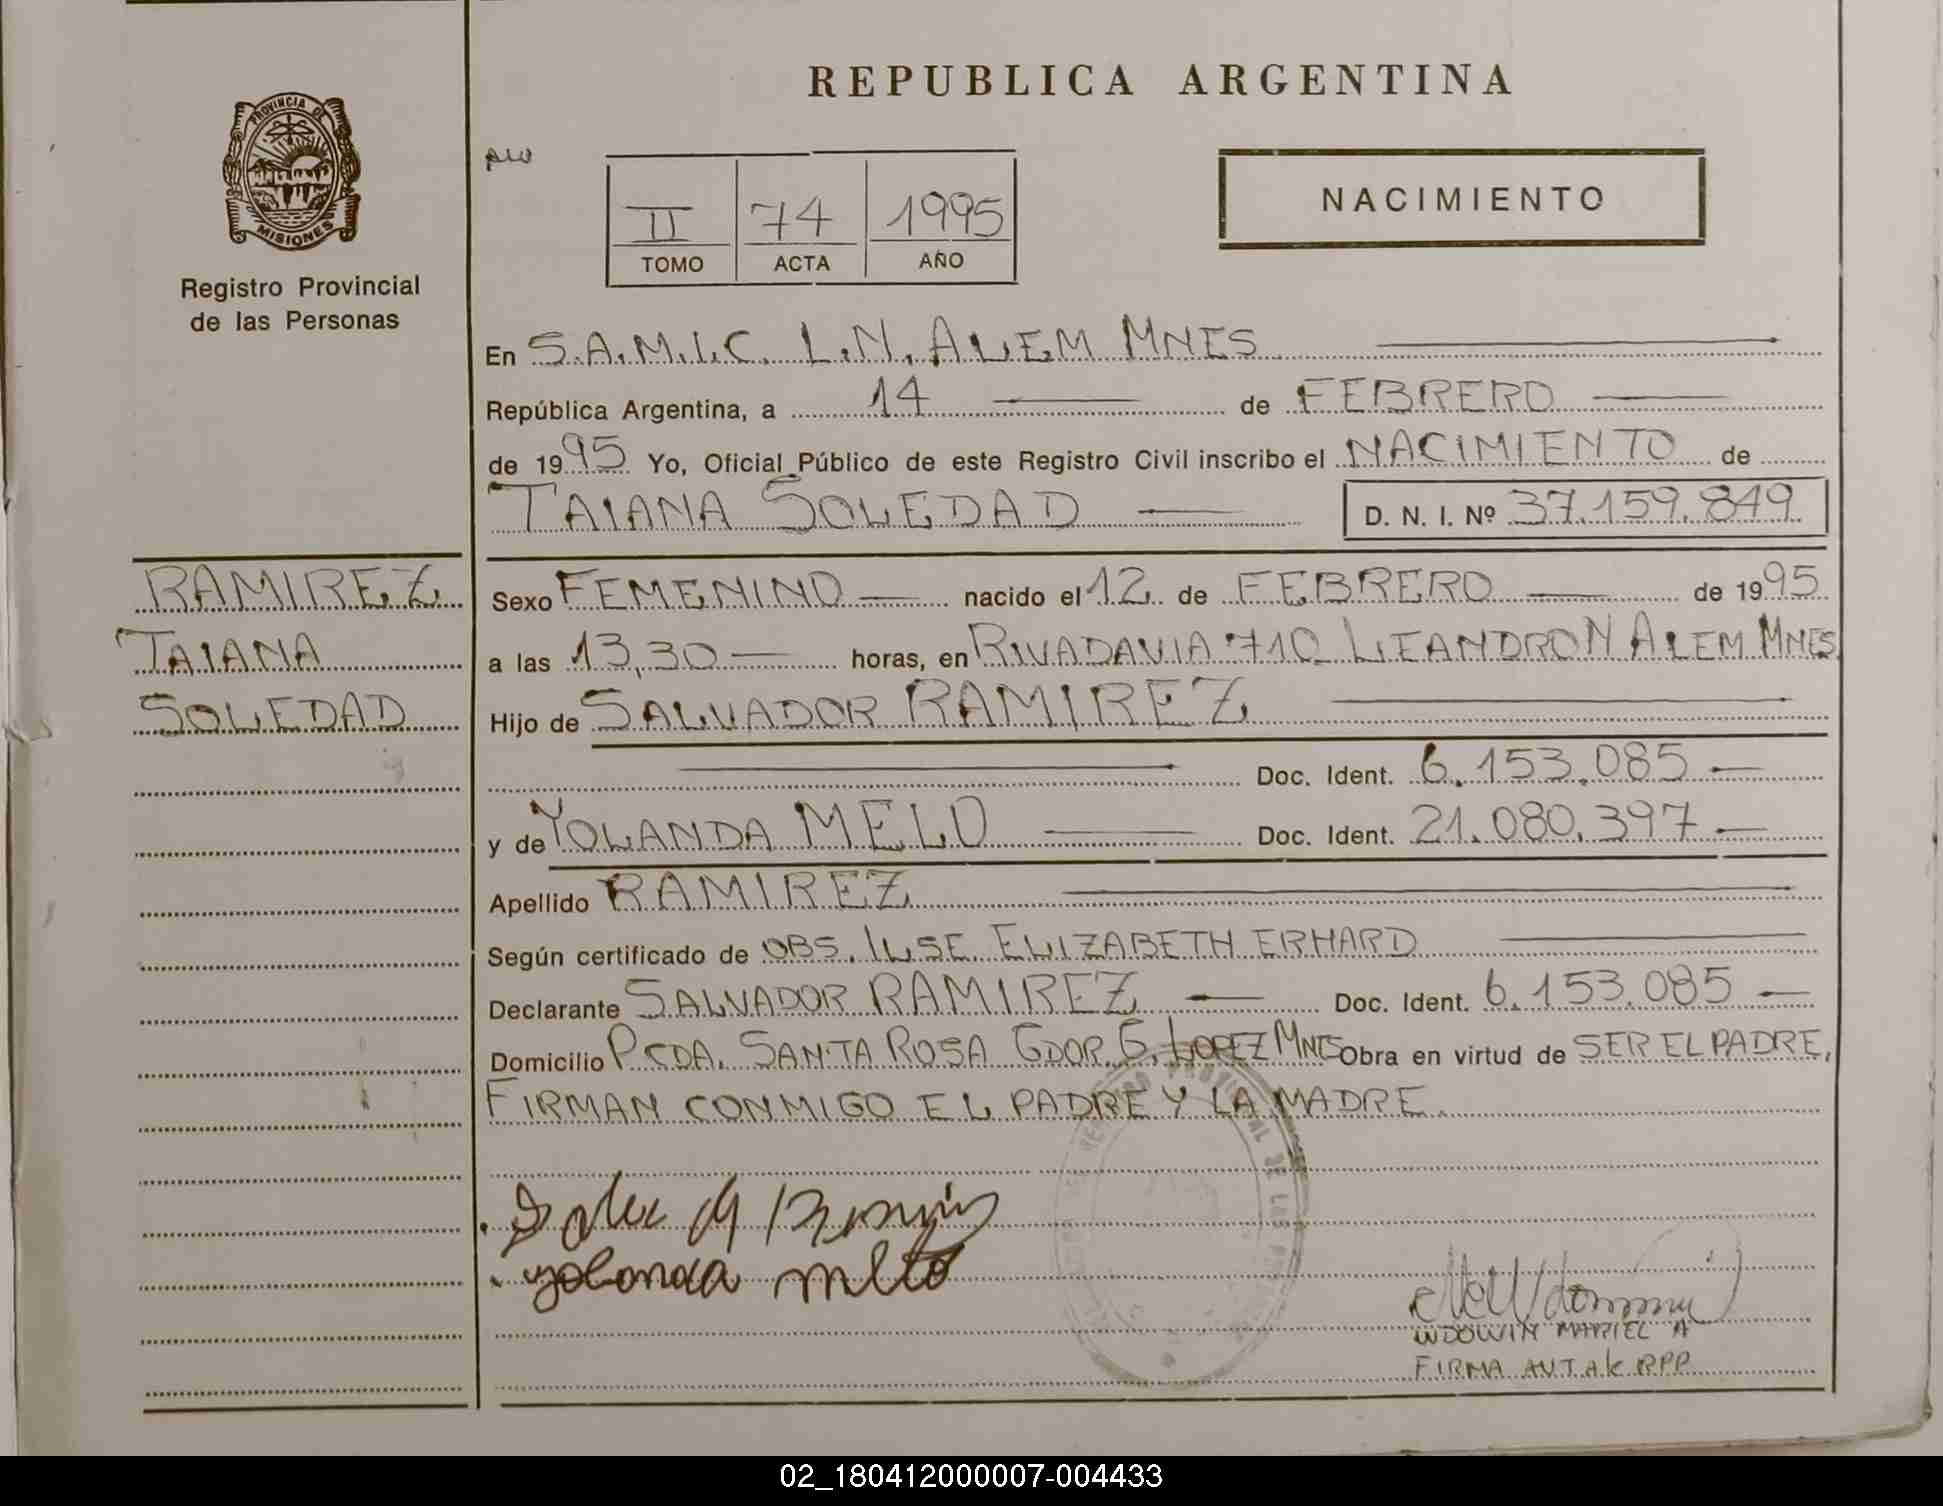 REPUBLICA ARGENTINA
PROVINCIA DE
MISIONES
Registro Provincial
de las Personas
II 74 1995
TOMO ACTA AÑO
NACIMIENTO
En S.A.M.I.C. L.N. ALEM MNES
República Argentina, a 14 de FEBRERO
de 1995 Yo, Oficial Público de este Registro Civil inscribo el NACIMIENTO de
TAIANA SOLEDAD D. N. I. Nº 37.159.849
RAMIREZ
TAIANA
SOLEDAD
Sexo FEMENINO nacido el 12 de FEBRERO de 1995
a las 13,30 horas, en RIVADAVIA 710 LEANDRO N ALEM MNES
Hijo de SALVADOR RAMIREZ
Doc. Ident. 6.153.085
y de YOLANDA MELO Doc. Ident. 21.080.397
Apellido RAMIREZ
Según certificado de OBS. ILSE ELIZABETH ERHARD
Declarante SALVADOR RAMIREZ Doc. Ident. 6.153.085
Domicilio PCDA. SANTA ROSA GDOR. G. LOPEZ MNES Obra en virtud de SER EL PADRE,
FIRMAN CONMIGO EL PADRE Y LA MADRE.
yolonda melo
WDOWIN MARIEL A
FIRMA AUT. RPP
02_180412000007-004433